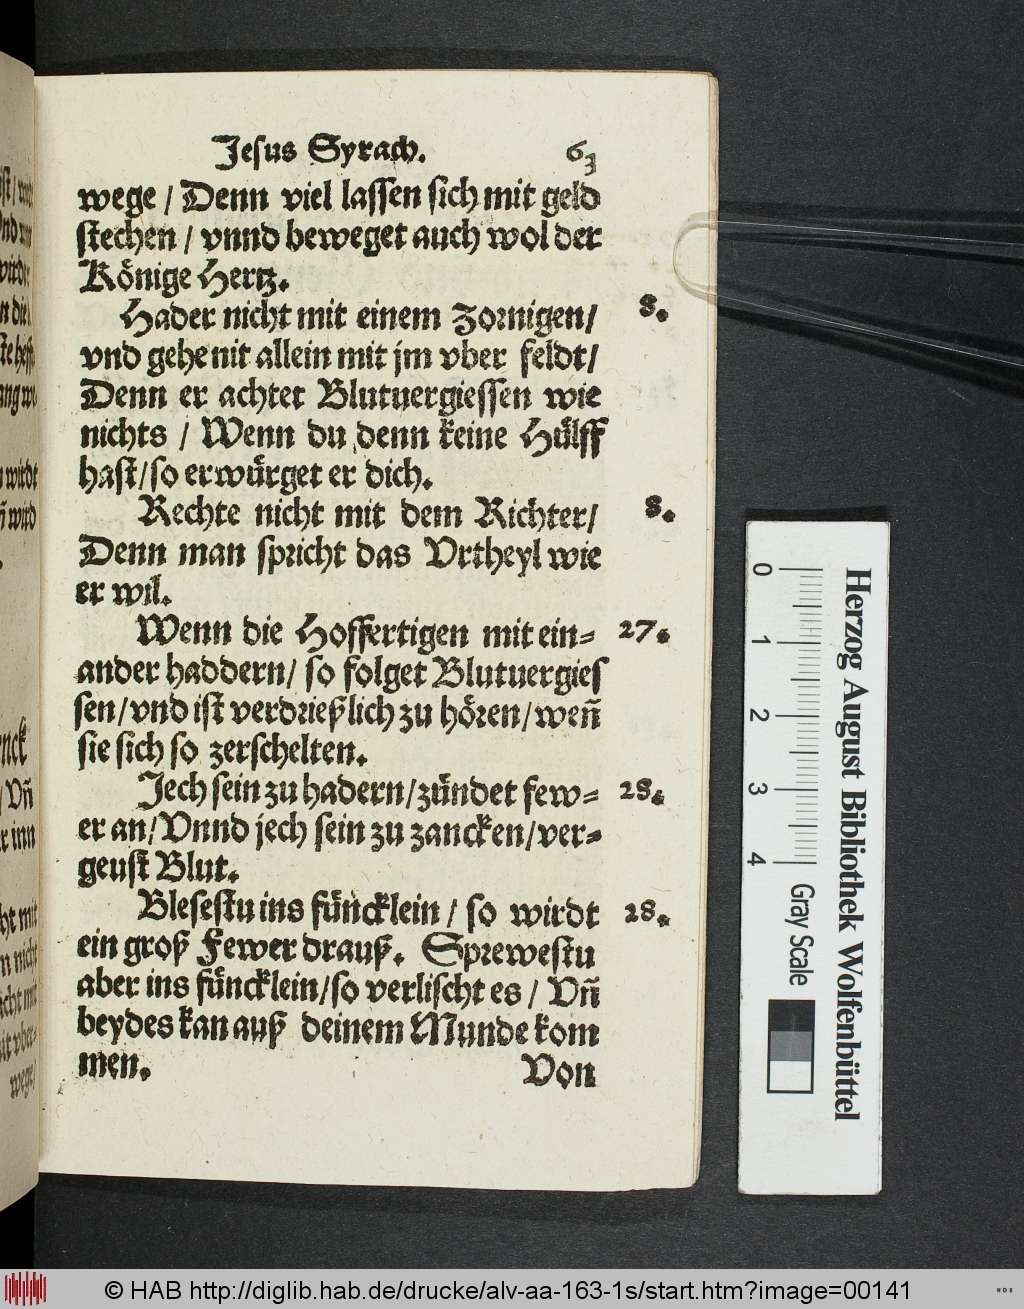 Jesus Syrach. 63
wege / Denn viel lassen sich mit geld
stechen / vnnd beweget auch wol der
Könige Hertz.
Hader nicht mit einem zornigen/ 8.
vnd gehe nit allein mit jm vber feldt/
Denn er achtet Blutuergiessen wie
nichts / Wenn du denn keine Hülff
hast/so erwürget er dich.
Rechte nicht mit dem Richter/ 8.
Denn man spricht das Vrtheyl wie
er wil.
Wenn die Hoffertigen mit ein= 27.
ander haddern/ so folget Blutuergies
sen/vnd ist verdrießlich zu hören/weñ
sie sich so zerschelten.
Jech sein zu hadern/zündet few= 28.
er an/Vnnd jech sein zu zancken/ver=
geust Blut.
Blesestu ins füncklein / so wirdt 28.
ein groß Fewer drauß. Sprewestu
aber ins füncklein/so verlischt es / Vñ
beydes kan auß deinem Munde kom
men. Von
0 1 2 3 4
Gray Scale
Herzog August Bibliothek Wolfenbüttel
© HAB http://diglib.hab.de/drucke/alv-aa-163-1s/start.htm?image=00141